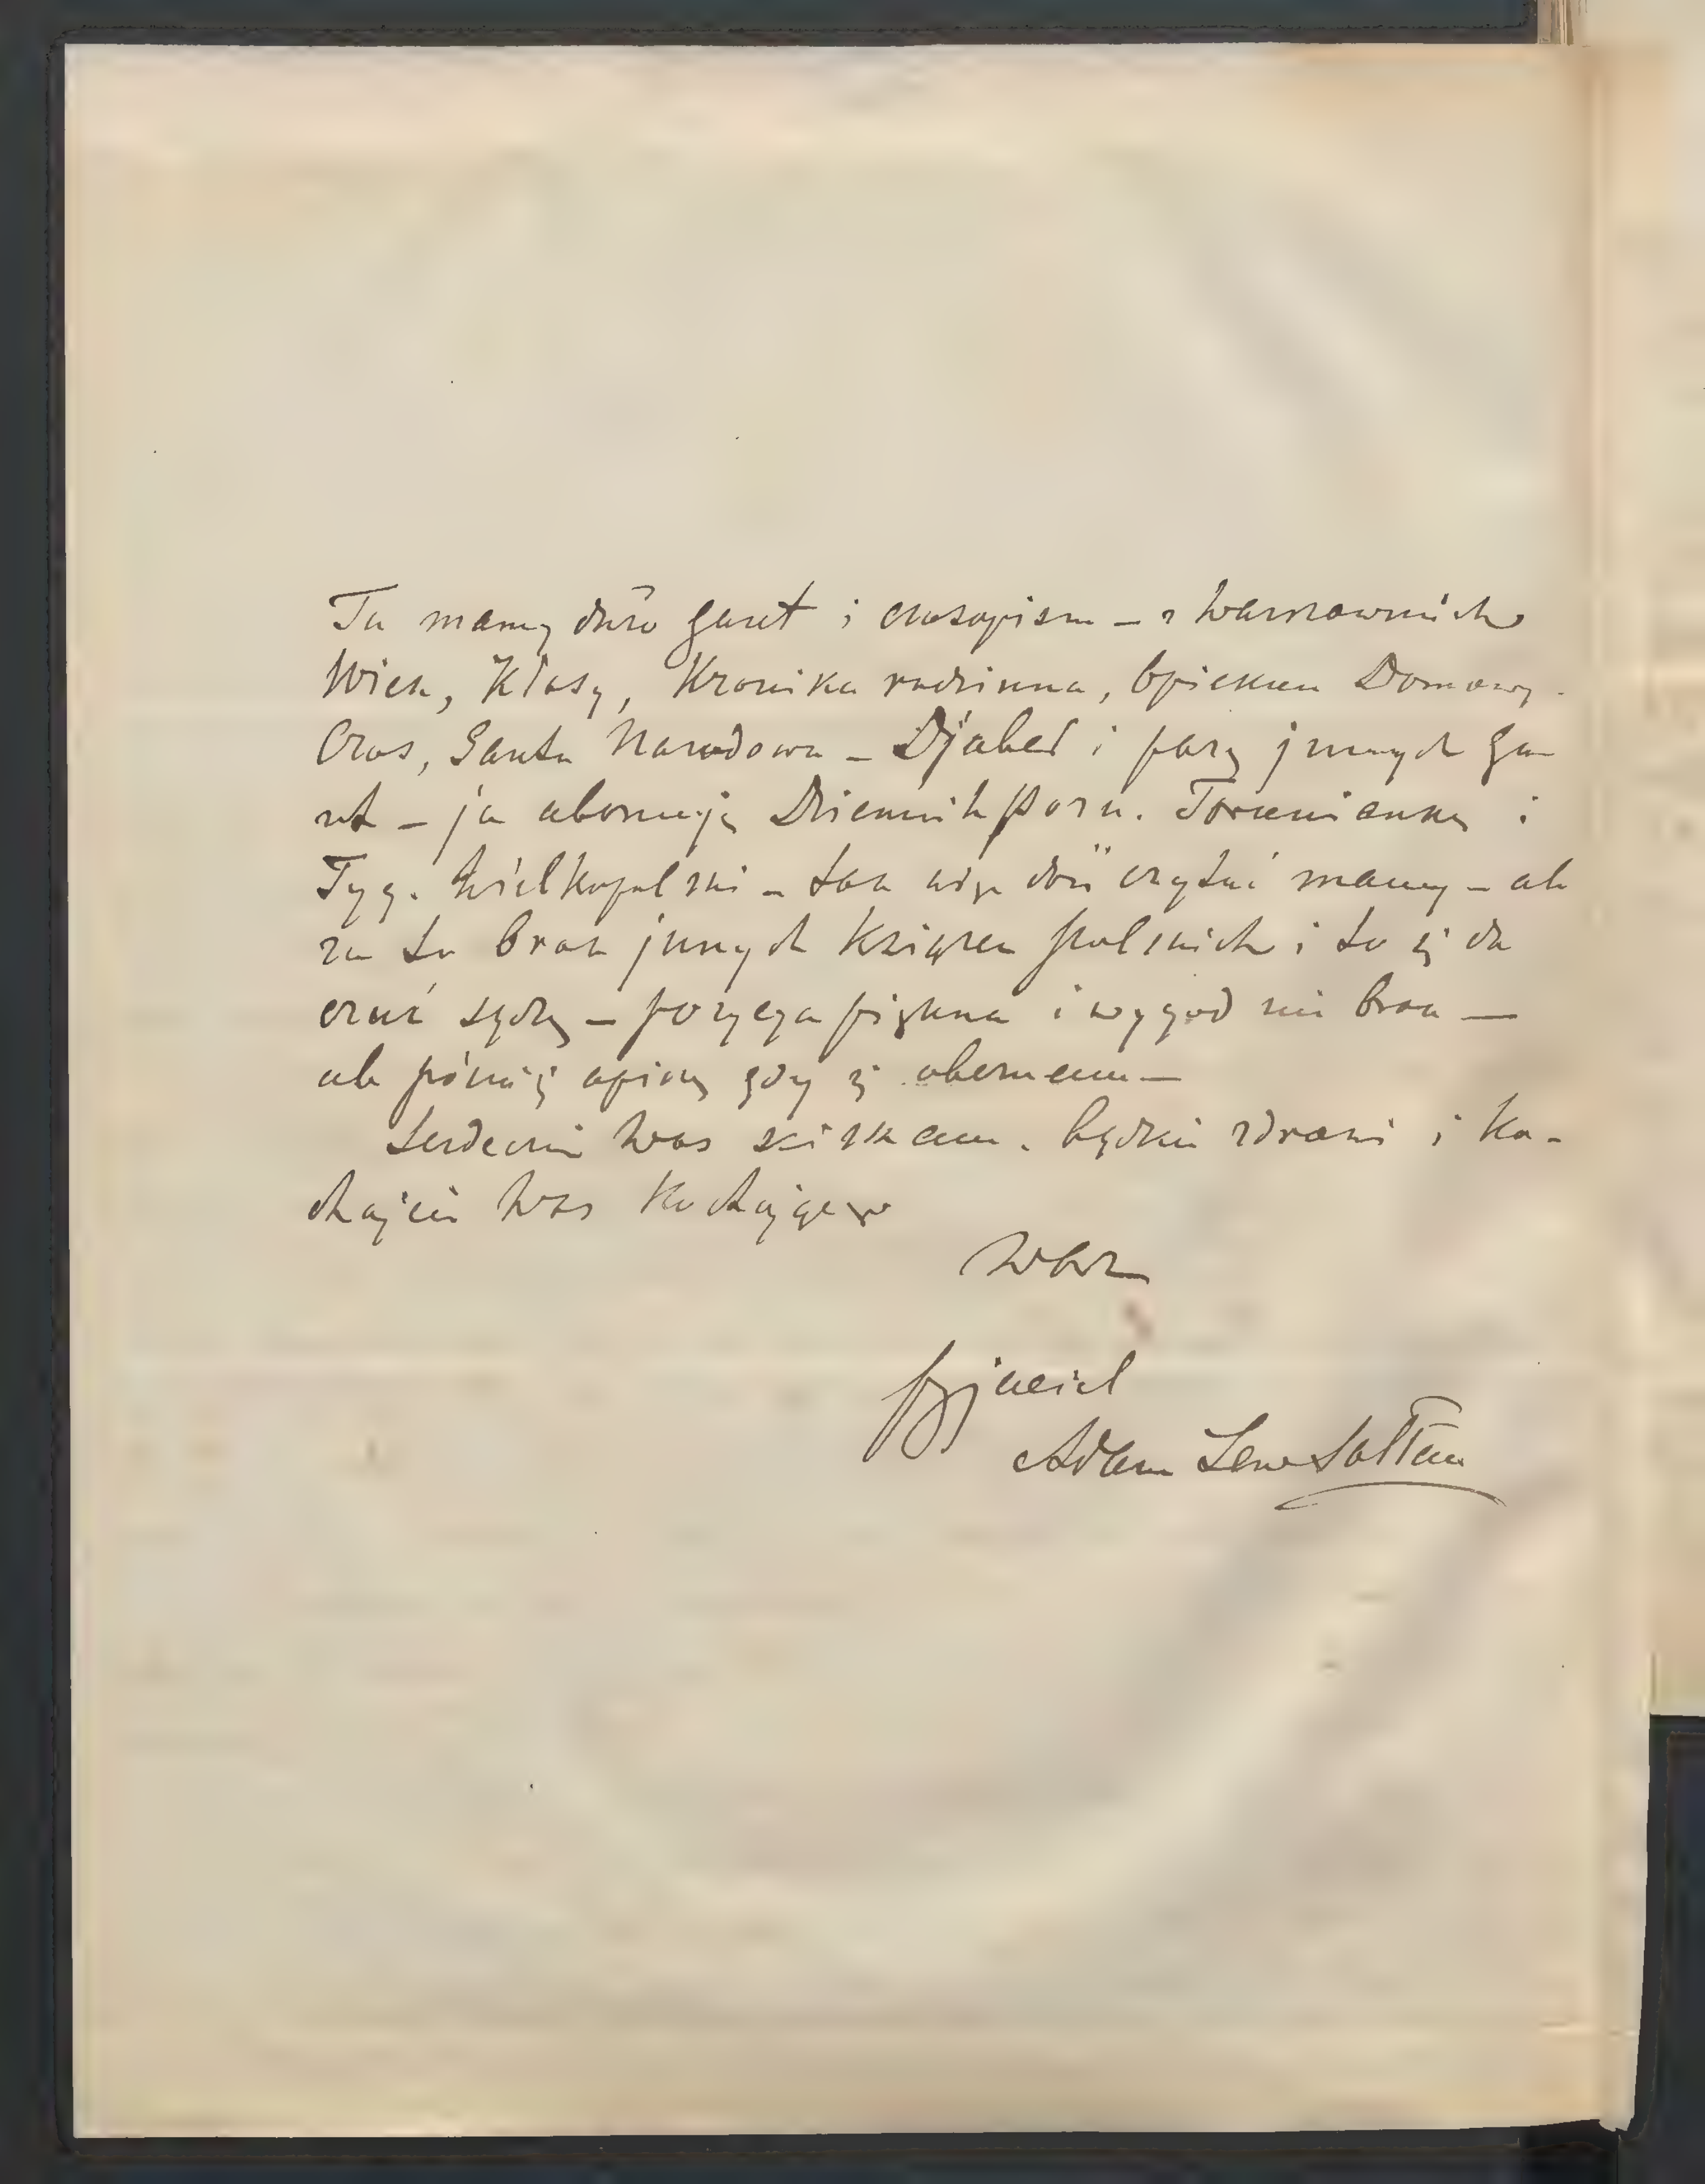 Tu mamy dużo gazet i czasopism – z Warszawskich
Wiek, Kłosy, Kronika rodzinna, Opiekun Domowy.
Czas, Gazeta Narodowa – Djabeł i parę jnnych ga-
zet – ja abonuję Dziennik Pozn. Toruniankę i
Tyg. Wielkopolski – tak więc dość czytać mamy – ale
za to brak jnnych książek polskich i to się da
czuć sądzę – pozycya piękna i wygód nie brak —
ale później opiszę gdy się obeznam —
Serdecznie Was ściskam. bądźcie zdrowi i ko-
chajcie Was kochającego
Wasz
przyjaciel
Adam Lew Sołtan